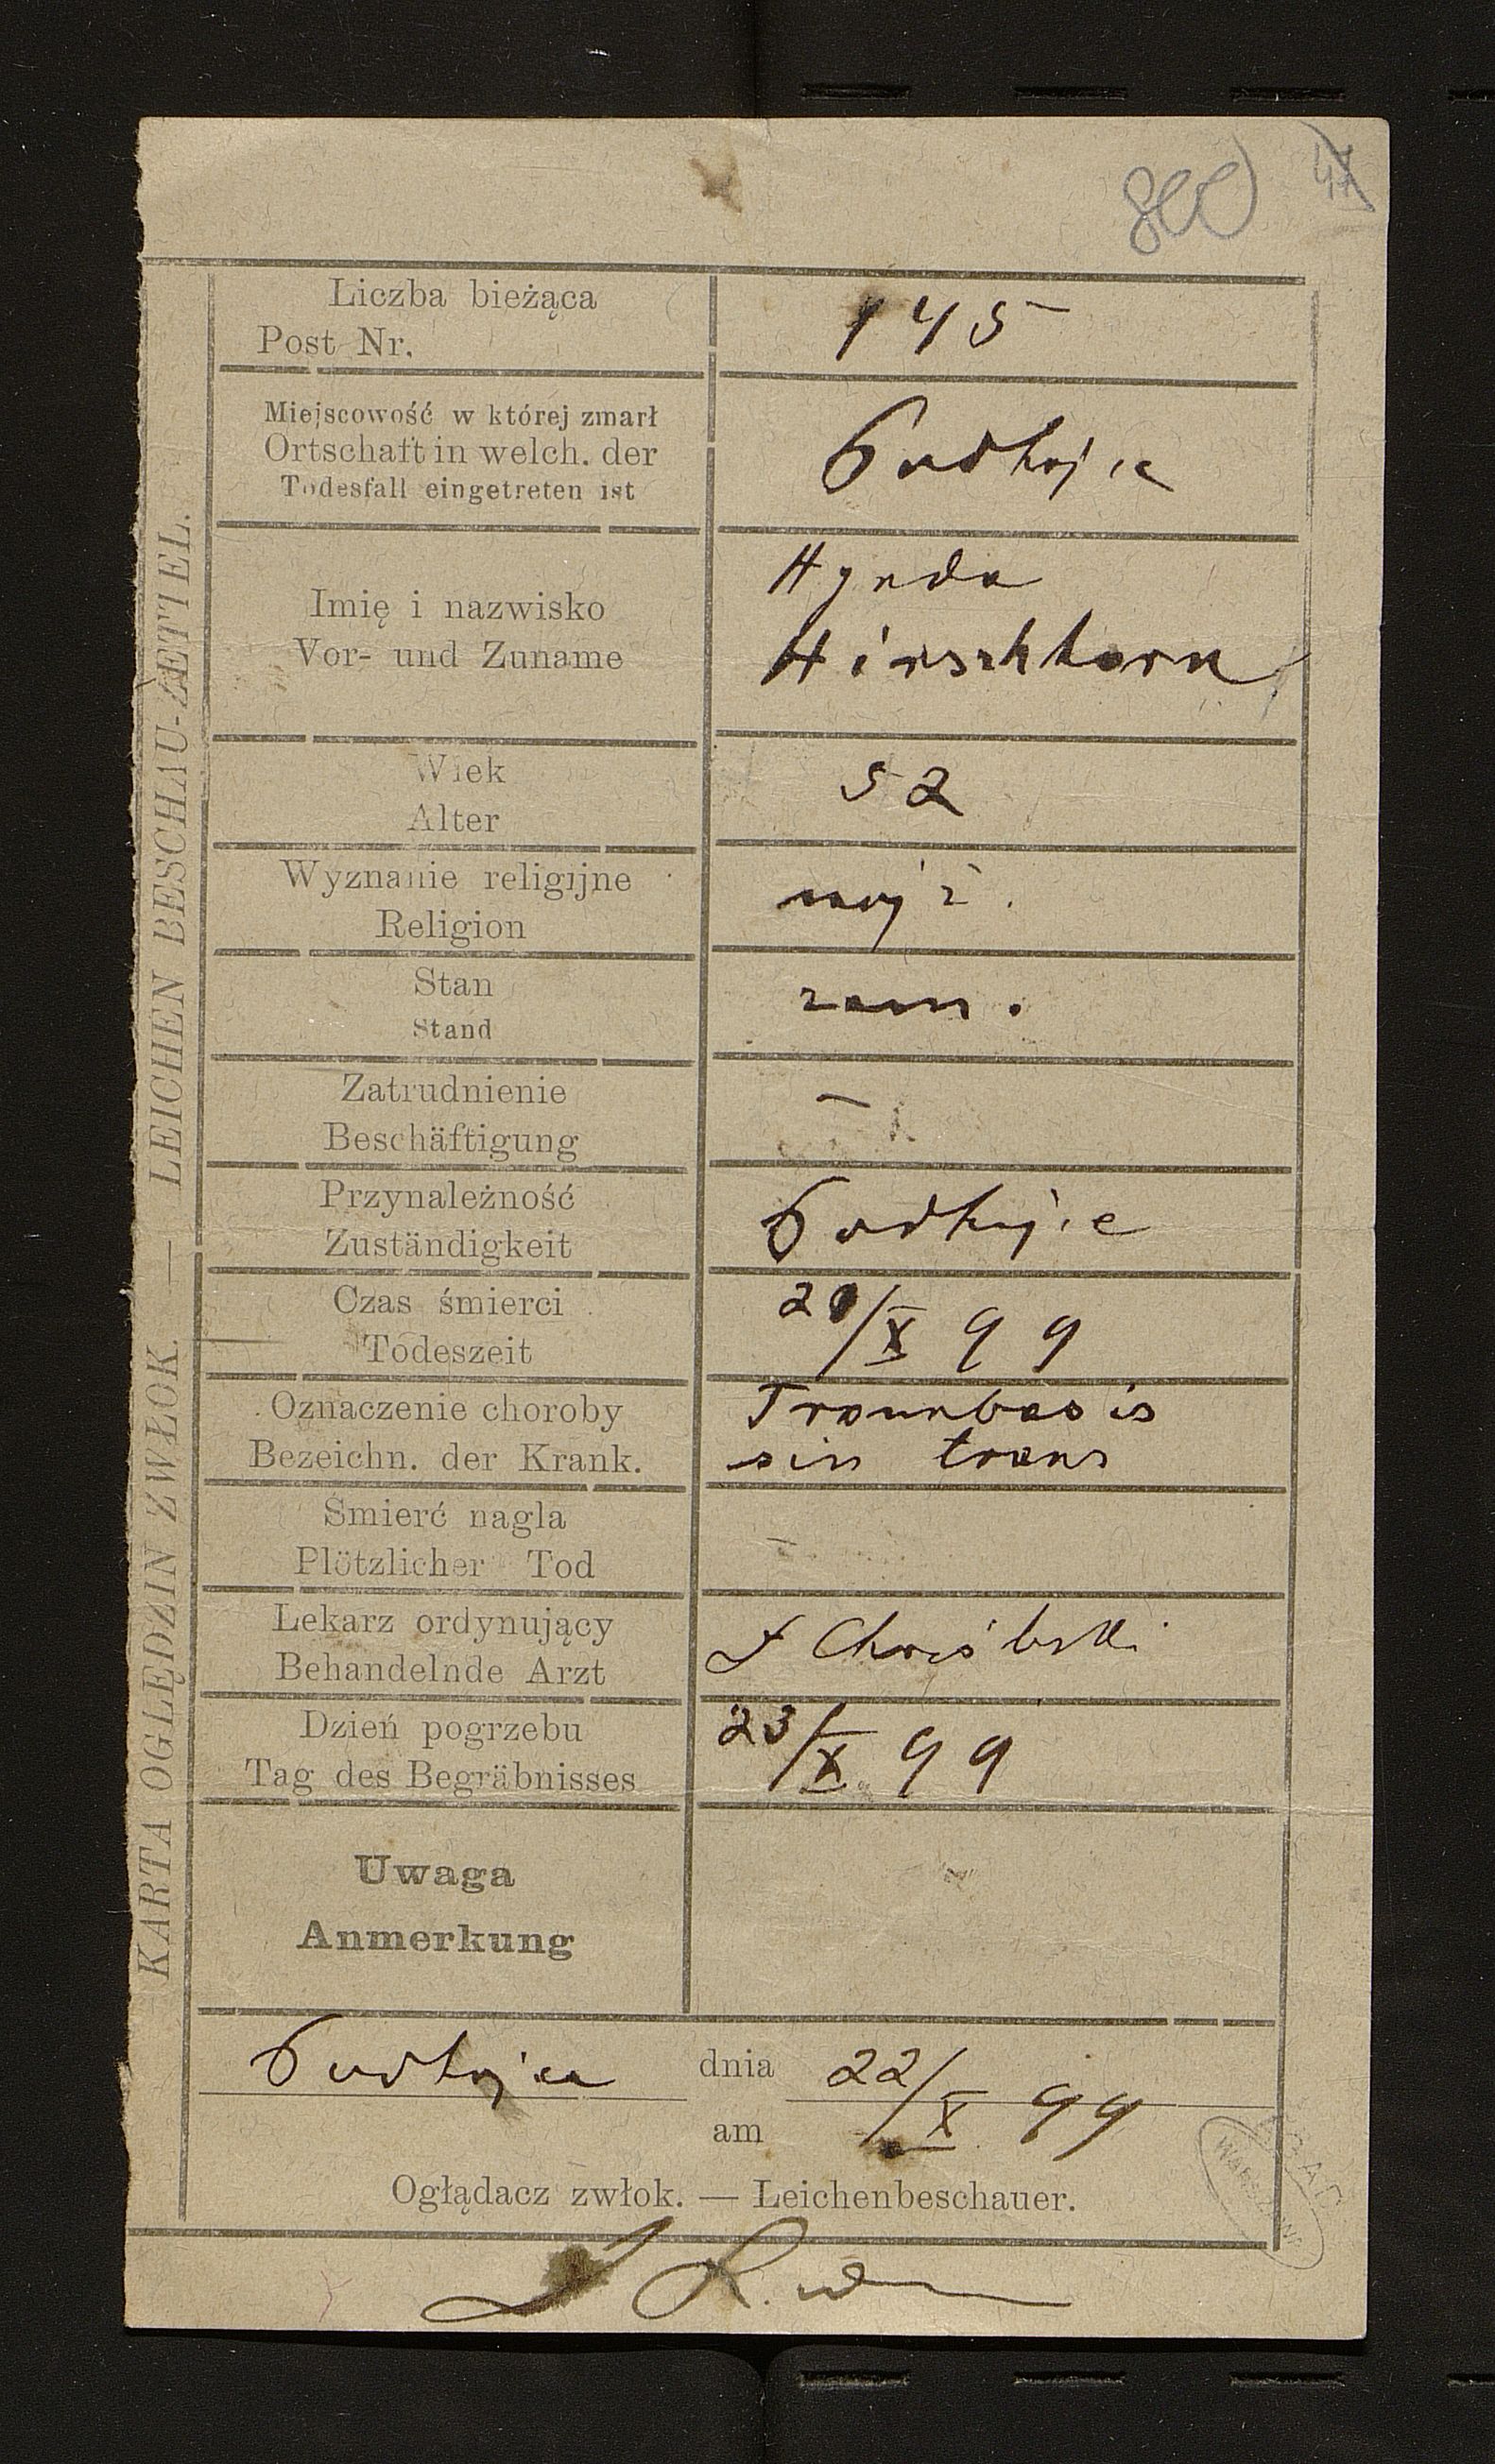 800 47
KARTA OGLĘDZIN ZWŁOK. — LEICHEN BESCHAU-ZETTEL.
Liczba bieżąca
Post Nr.
145
Miejscowość w której zmarł
Ortschaft in welch. der
Todesfall eingetreten ist
Podhajce
Imię i nazwisko
Vor- und Zuname
Hynda
Hirschhorn
Wiek
Alter
52
Wyznanie religijne
Religion
mojż.
Stan
Stand
zam.
Zatrudnienie
Beschäftigung
—
Przynależność
Zuständigkeit
Podhajce
Czas śmierci
Todeszeit
/X 99
Oznaczenie choroby
Bezeichn. der Krank.
Trombosis
sin trans
Śmierć nagla
Plötzlicher Tod
-
Lekarz ordynujący
Behandelnde Arzt
Dzień pogrzebu
Tag des Begräbnisses
23/X 99
Uwaga
Anmerkung
Podhajce dnia 22/X 99
am
Oglądacz zwłok. — Leichenbeschauer.
AGAD
WARSZAWA